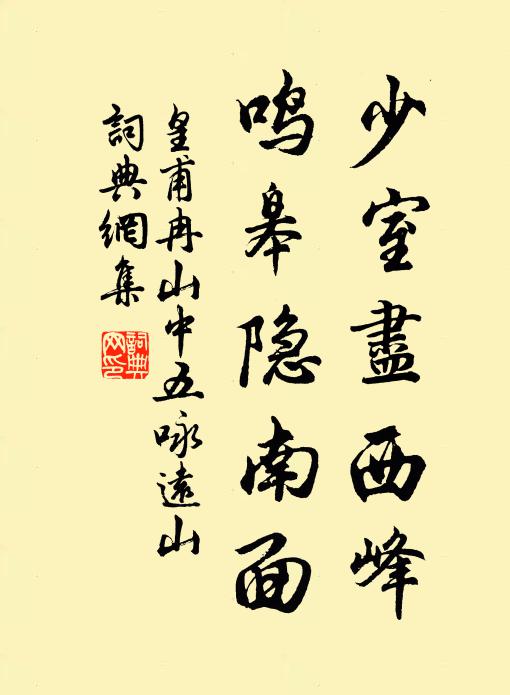 少室盡西峰
鸣皋隐南面
皇甫冉山中五咏遠山
詞典網集
詞典网印